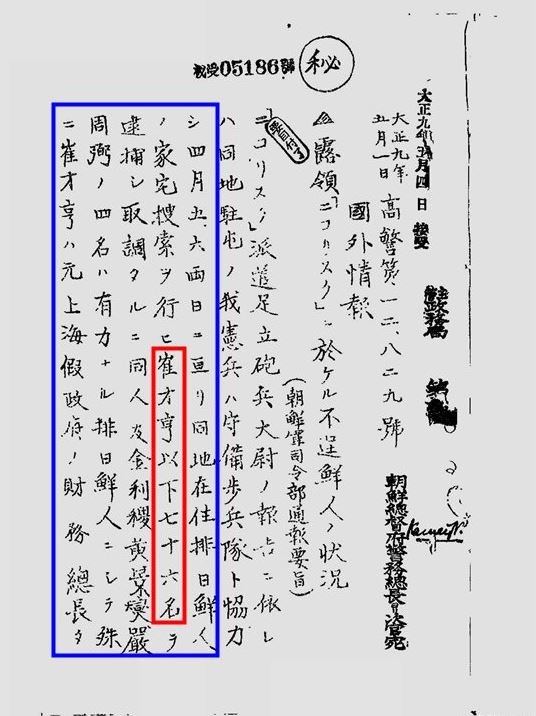 秘
大正九年五月四日 接受
大正九年
五月一日
高警第一二、八二九號
國外情報
露領「ニコリスク」ニ於ケル不逞鮮人ノ状況
(朝鮮軍司令部通報要旨)
「ニコリスク」派遣足立砲兵大尉ノ報告ニ依レ
ハ同地駐屯ノ我憲兵ハ守備歩兵隊ト協力
シ四月五、六両日ニ亘リ同地在住排日鮮人
ノ家宅搜索ヲ行ヒ崔才亨以下七十六名ヲ
逮捕シ取調タルニ同人及金利稷黄景燮嚴
周弼ノ四名ハ有力ナル排日鮮人ニシテ殊
ニ崔才亨ハ元上海假政府ノ財務總長タ